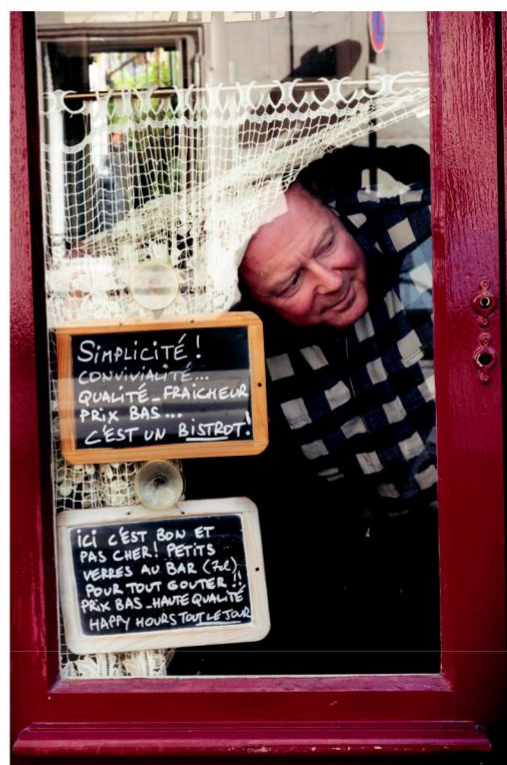 SIMPLICITÉ !
CONVIVIALITÉ...
QUALITÉ_FRAICHEUR
PRIX BAS...
C'EST UN BISTROT !
ICI C'EST BON ET
PAS CHER ! PETITS
VERRES AU BAR (7cl)
POUR TOUT GOUTER !!
PRIX BAS_HAUTE QUALITÉ
HAPPY HOURS TOUT LE JOUR